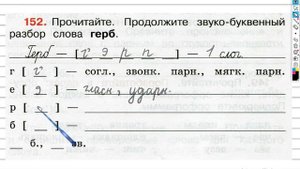 152. Прочитайте. Продолжите звуко-буквенный
разбор слова герб.
Герб — [г' э р п] — 1 слог.
г [г'] — согл., звонк. парн., мягк. парн.
е [э] — гласн., ударн.
р [ ] —
б [ ] —
б., зв.